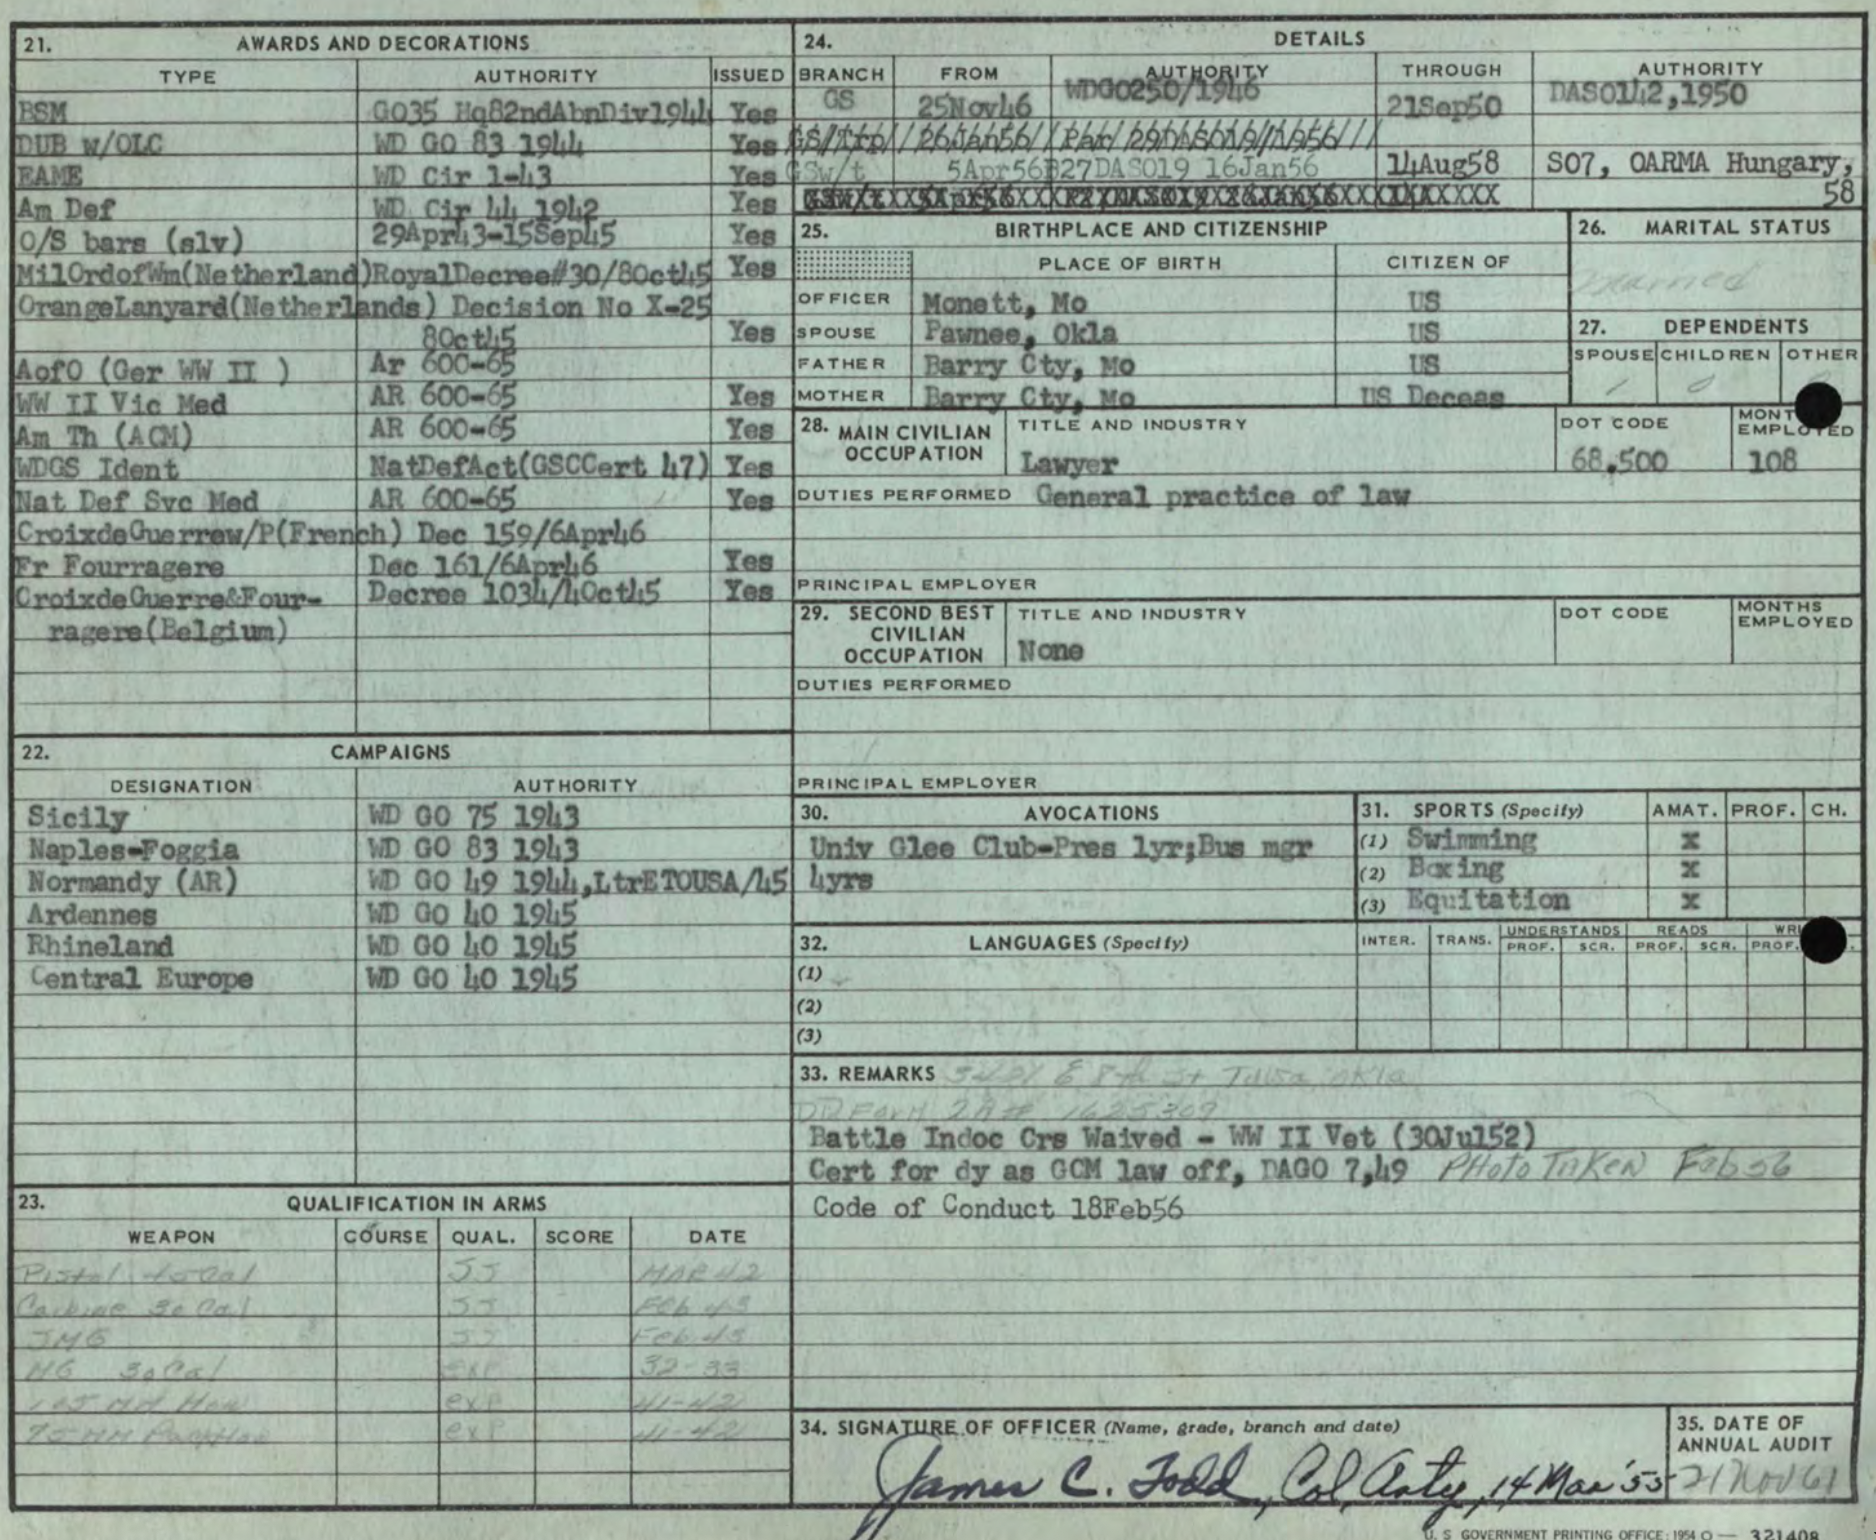 21. AWARDS AND DECORATIONS
TYPE AUTHORITY ISSUED
BSM GO35 Hq82ndAbnDiv1944 Yes
DUB w/OLC WD GO 83 1944 Yes
EAME WD Cir 1-43 Yes
Am Def WD Cir 44 1942 Yes
O/S bars (slv) 29Apr43-15Sep45 Yes
MilOrdofWm(Netherland)RoyalDecree#30/8Oct45 Yes
OrangeLanyard(Netherlands) Decision No X-25
8Oct45 Yes
AofO (Ger WW II ) Ar 600-65
WW II Vic Med AR 600-65 Yes
Am Th (ACM) AR 600-65 Yes
WDGS Ident NatDefAct(GSCCert 47) Yes
Nat Def Svc Med AR 600-65 Yes
CroixdeGuerrew/P(French) Dec 159/6Apr46
Fr Fourragere Dec 161/6Apr46 Yes
CroixdeGuerre&Four- Decree 1034/4Oct45 Yes
ragere(Belgium)
22. CAMPAIGNS
DESIGNATION AUTHORITY
Sicily WD GO 75 1943
Naples-Foggia WD GO 83 1943
Normandy (AR) WD GO 49 1944,LtrETOUSA/45
Ardennes WD GO 40 1945
Rhineland WD GO 40 1945
Central Europe WD GO 40 1945
23. QUALIFICATION IN ARMS
WEAPON COURSE QUAL. SCORE DATE
Pistol 45 Cal SS MAR 42
Carbine 30 Cal SS Feb 43
SMG SS Feb 43
MG 30 Cal exp 32-33
105 MM How exp 41-42
75 MM PackHow exp 41-42
24. DETAILS
BRANCH FROM AUTHORITY THROUGH AUTHORITY
GS 25Nov46 WDGO250/1946 21Sep50 DASO142,1950
GS/Trp 26Jan56 Par 29DASO19/1956
GSw/t 5Apr56 P27DASO19 16Jan56 14Aug58 SO7, OARMA Hungary,
58
25. BIRTHPLACE AND CITIZENSHIP
PLACE OF BIRTH CITIZEN OF
OFFICER Monett, Mo US
SPOUSE Pawnee, Okla US
FATHER Barry Cty, Mo US
MOTHER Barry Cty, Mo US Deceas
26. MARITAL STATUS
married
27. DEPENDENTS
SPOUSE CHILDREN OTHER
1 0
28. MAIN CIVILIAN OCCUPATION
TITLE AND INDUSTRY DOT CODE MONT EMPLOYED
Lawyer 68,500 108
DUTIES PERFORMED General practice of law
PRINCIPAL EMPLOYER
29. SECOND BEST CIVILIAN OCCUPATION
TITLE AND INDUSTRY DOT CODE MONTHS EMPLOYED
None
DUTIES PERFORMED
PRINCIPAL EMPLOYER
30. AVOCATIONS
Univ Glee Club-Pres 1yr;Bus mgr
4yrs
31. SPORTS (Specify) AMAT. PROF. CH.
(1) Swimming x
(2) Boxing x
(3) Equitation x
32. LANGUAGES (Specify) INTER. TRANS. UNDERSTANDS READS WRI
PROF. SCR. PROF. SCR. PROF.
(1)
(2)
(3)
33. REMARKS E 8th St Tulsa, Okla
DD Form 2A# 1625309
Battle Indoc Crs Waived - WW II Vet (30Jul52)
Cert for dy as GCM law off, DAGO 7,49 PHoto TaKen Feb 56
Code of Conduct 18Feb56
34. SIGNATURE OF OFFICER (Name, grade, branch and date)
James C. Todd, Col, Arty, 14 Mar '55
35. DATE OF ANNUAL AUDIT
21 Nov 61
U. S GOVERNMENT PRINTING OFFICE: 1954 O — 321408